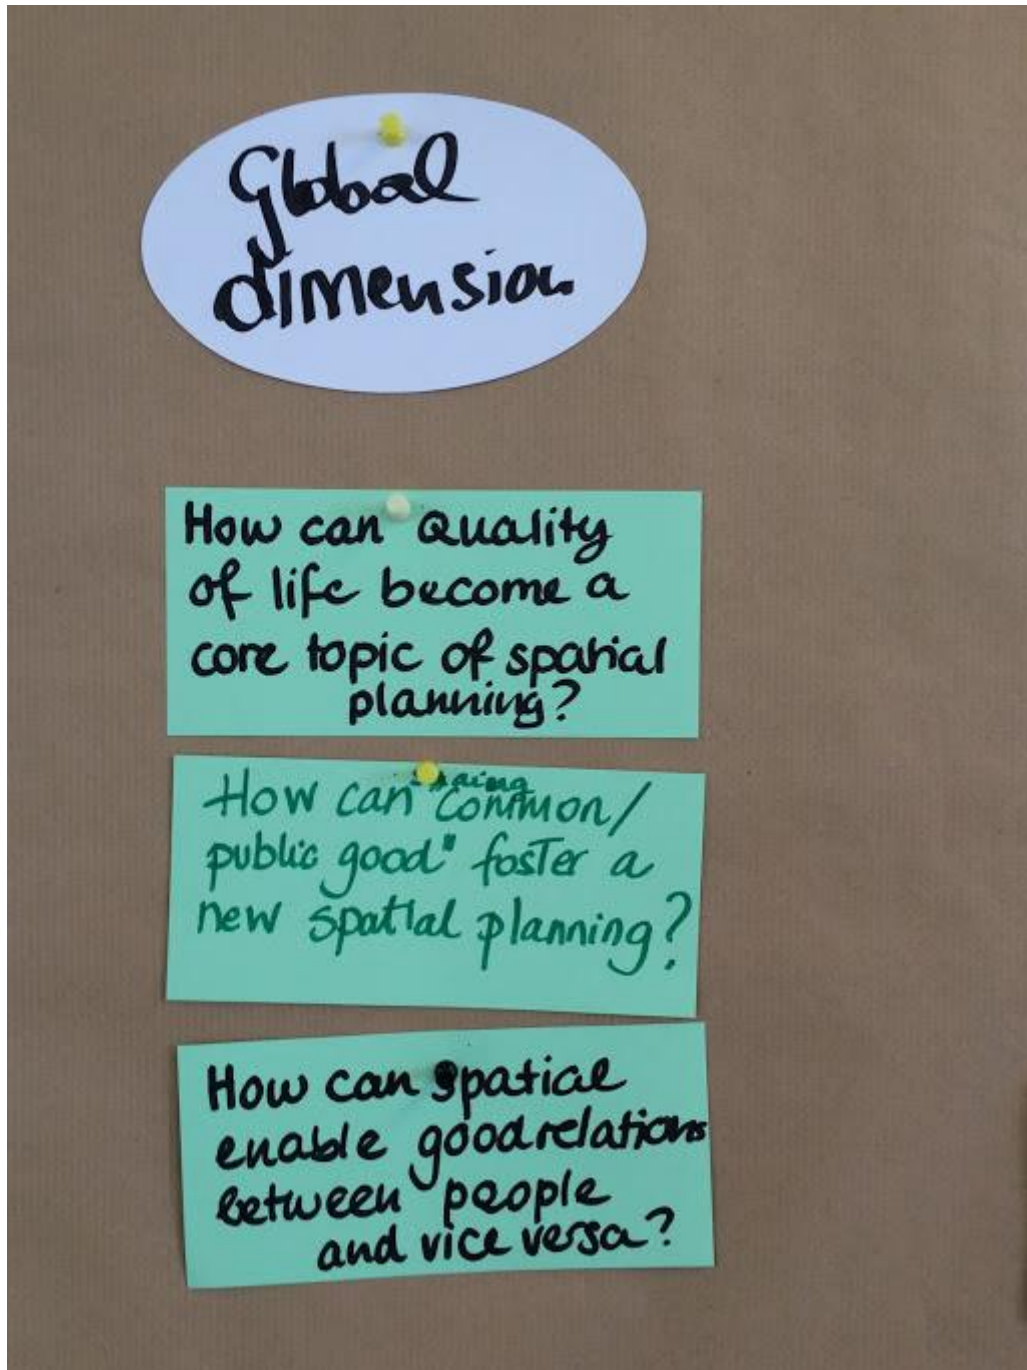 Global
dimension
How can Quality
of life become a
core topic of spatial
planning?
How can "common/
public good" foster a
new spatial planning?
How can spatial
enable good relations
between people
and vice versa?